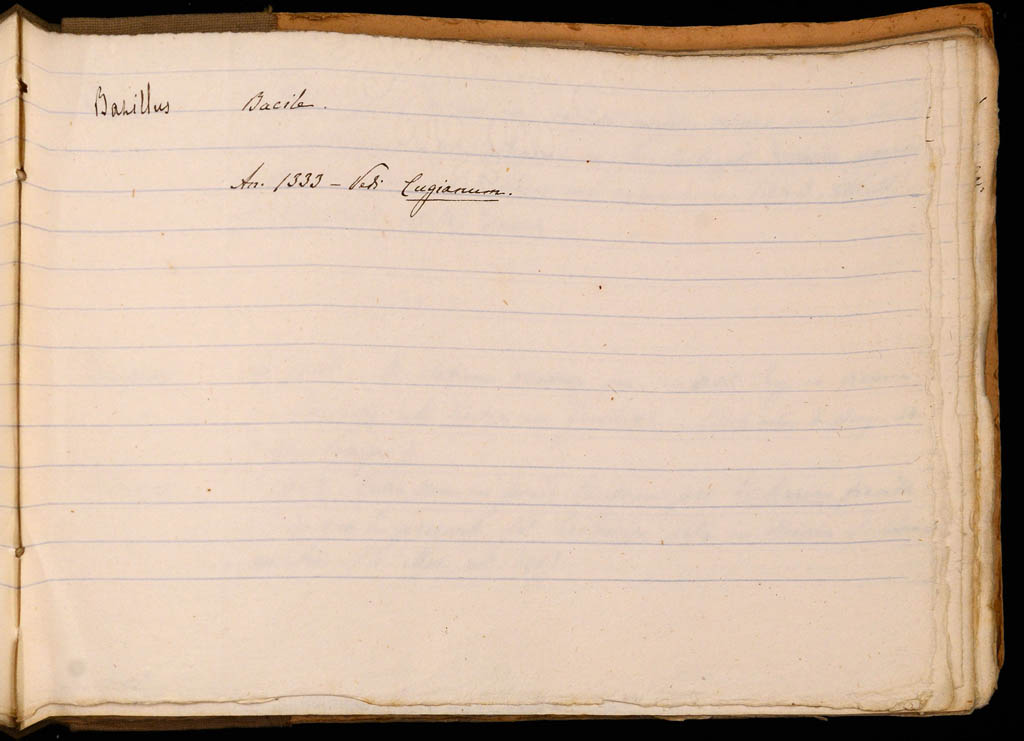 Bazillus Bacile.
An. 1333 - Vedi Cugianum.